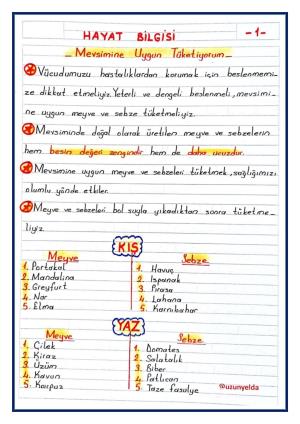 HAYAT BİLGİSİ
-1-
Mevsimine Uygun Tüketiyorum
Vücudumuzu hastalıklardan korumak için beslenmemi-
ze dikkat etmeliyiz. Yeterli ve dengeli beslenmeli, mevsimi-
ne uygun meyve ve sebze tüketmeliyiz.
Mevsiminde doğal olarak üretilen meyve ve sebzelerin
hem besin değeri zengindir hem de daha ucuzdur.
Mevsimine uygun meyve ve sebzeleri tüketmek, sağlığımızı
olumlu yönde etkiler.
Meyve ve sebzeleri bol suyla yıkadıktan sonra tüketme-
liyiz.
KIŞ
Meyve
1. Portakal
2. Mandalina
3. Greyfurt
4. Nar
5. Elma
Sebze
1. Havuç
2. Ispanak
3. Pırasa
4. Lahana
5. Karnıbahar
YAZ
Meyve
1. Çilek
2. Kiraz
3. Üzüm
4. Kavun
5. Karpuz
Sebze
1. Domates
2. Salatalık
3. Biber
4. Patlıcan
5. Taze fasulye
@uzunyelda